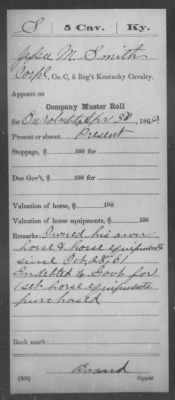 S 5 Cav. Ky.
M. Smith
Corpl, Co. C, 5 Reg't Kentucky Cavalry.
Appears on
Company Muster Roll
for 186
Present or absent Present
Stoppage, $ 100 for
Due Gov't, $ 100 for
Valuation of horse, $ 100
Valuation of horse equipments, $ 100
Remarks: Owned his own
horse & horse equipments
since Oct 28/61
Indebted to Govt for
1 set horse equipments
purchased
Book mark:
(356) Copyist.